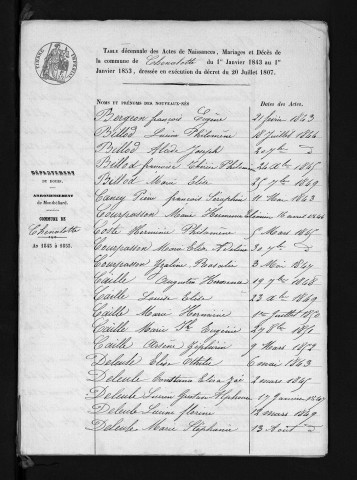 TIMBRE IMPERIAL
TABLE décennale des Actes de Naissances, Mariages et Décès de
la commune de Chenalotte du 1er Janvier 1843 au 1er
Janvier 1853, dressée en exécution du décret du 20 Juillet 1807.
NOMS ET PRÉNOMS DES NOUVEAUX-NÉS
Dates des Actes.
DÉPARTEMENT
DU DOUBS.
ARRONDISSEMENT
de Montbéliard.
COMMUNE DE
Chenalotte
An 1843 à 1853.
Bergeon françois Eugène 21 février 1843
Billod Lucine Philomène 18 Juillet 1844
Billod Alcide Joseph 20 7bre d°
Billod françoise Philomène 24 1845
Billod Marie Elise 25 7bre 1849
Cancy Pierre françois Séraphin 11 Mai 1843
Courpasson Marie mars 1844
Coste Hermine Philomène 5 Mars 1845
Courpasson Marie Elise Adeline 30 7bre d°
Courpasson Rosalie 3 Mai 1847
Caille Augustin 19 7bre 1848
Caille Louise Elise 23 1849
Caille Marie Hermine 1er Juillet 1850
Caille Marie Eugénie 27 8bre 1851
Caille Arsène Zéphirin 9 Mars 1852
Deleule Elise Othilie 6 mai 1843
Deleule Constance Zoé 2 mars 1845
Deleule Alphonse 17 Janvier 1847
Deleule Lucine 12 mars 1849
Deleule Marie Stéphanie 13 Août d°